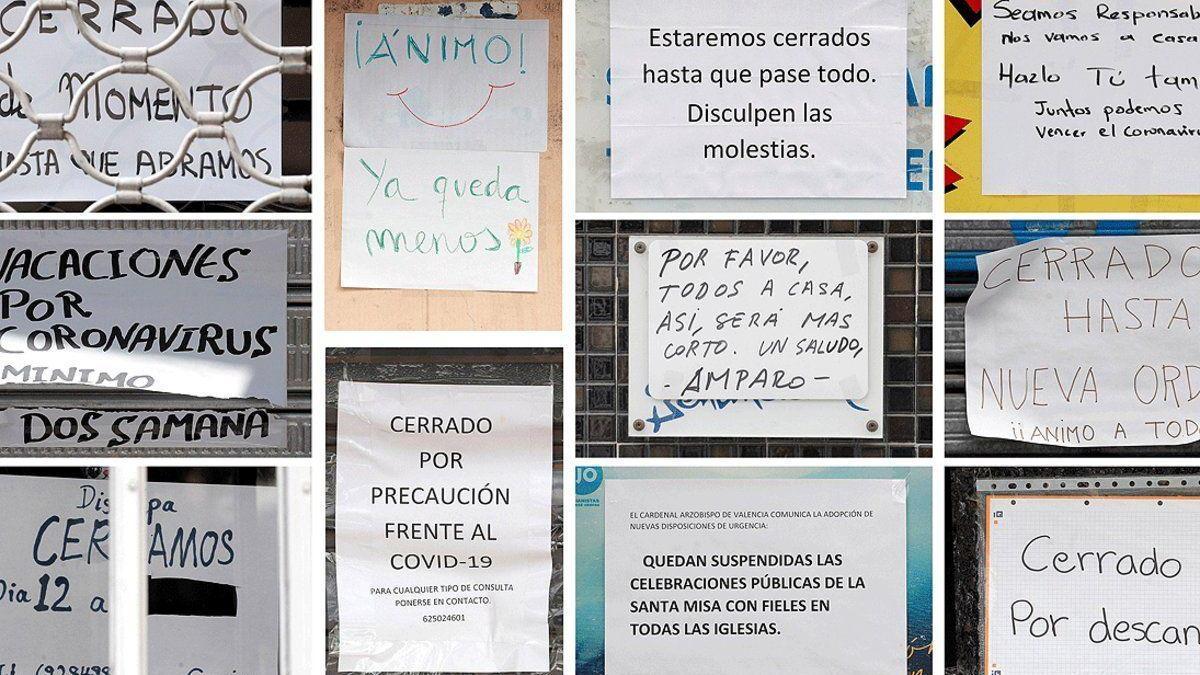 CERRADO
de MOMENTO
HASTA QUE ABRAMOS
VACACIONES
POR
CORONAVIRUS
MINIMO
DOS SAMANA
Dia 12 a
¡ÁNIMO!
Ya queda
menos
CERRADO
POR
PRECAUCIÓN
FRENTE AL
COVID-19
PARA CUALQUIER TIPO DE CONSULTA
PONERSE EN CONTACTO.
625024601
Estaremos cerrados
hasta que pase todo.
Disculpen las
molestias.
POR FAVOR,
TODOS A CASA,
ASI, SERÁ MAS
CORTO. UN SALUDO,
- AMPARO -
EL CARDENAL ARZOBISPO DE VALENCIA COMUNICA LA ADOPCIÓN DE
NUEVAS DISPOSICIONES DE URGENCIA:
QUEDAN SUSPENDIDAS LAS
CELEBRACIONES PÚBLICAS DE LA
SANTA MISA CON FIELES EN
TODAS LAS IGLESIAS.
Seamos Responsab
Nos vamos a casa
Hazlo Tú tam
Juntos podemos
Vencer el coronaviru
CERRADO
HASTA
NUEVA ORD
¡¡ANIMO A TOD
Cerrado
Por descan